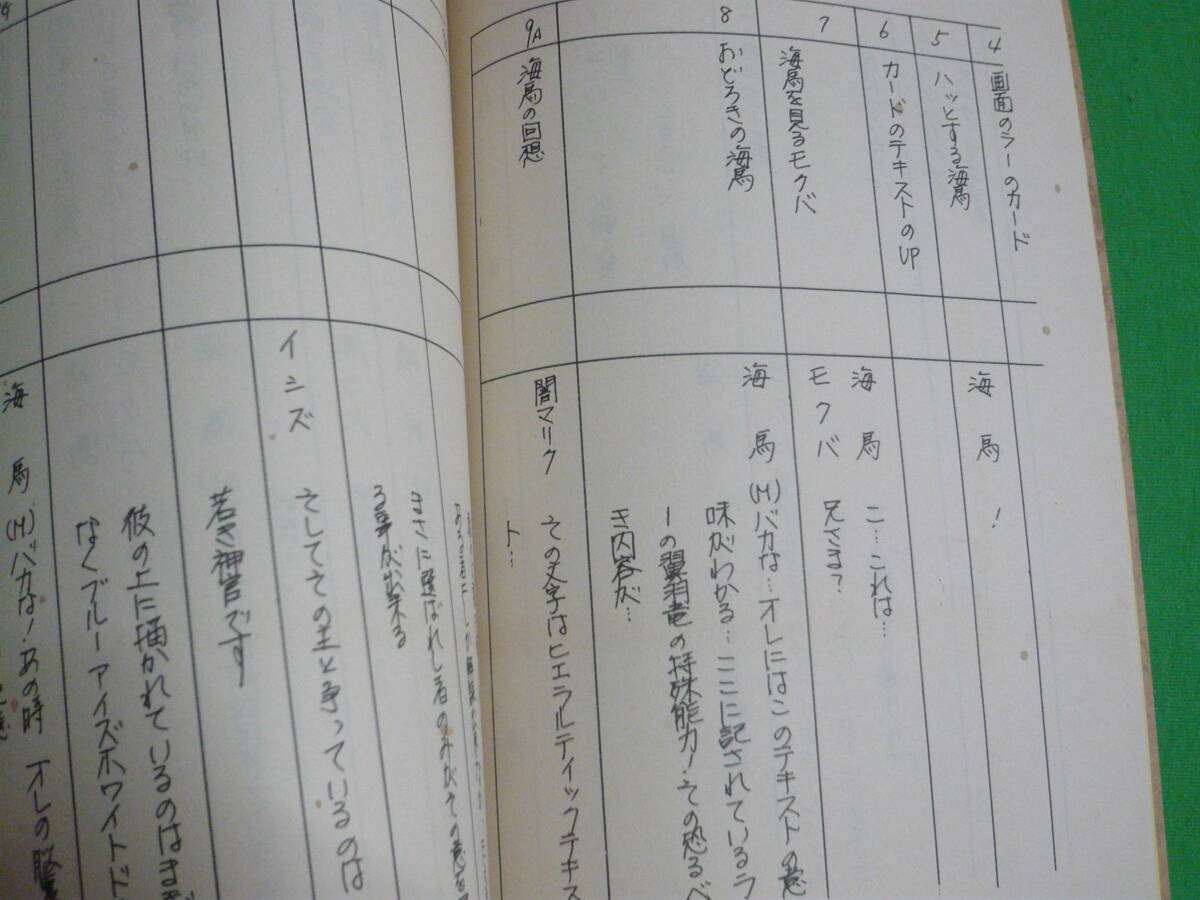 4
画面のラーのカード
海馬
!
5
ハッとする海馬
6
カードのテキストのUP
海馬
こ…これは…
7
海馬を見るモクバ
モクバ
兄さま?
8
おどろきの海馬
海馬
(M)バカな…オレにはこのテキストの意
味がわかる…ここに記されているラ
ーの翼羽竜の特殊能力!その恐るべ
き内容が…
9A
海馬の回想
闇マリク
その文字はヒエラルティックテキス
ト…
まさに選ばれし者のみがその意を
る事が出来る
イシズ
そしてその王と争っているのは
若き神官です
彼の上に描かれているのはまぎ
なくブルーアイズホワイトド
海馬
(M)バカな!あの時オレの脳